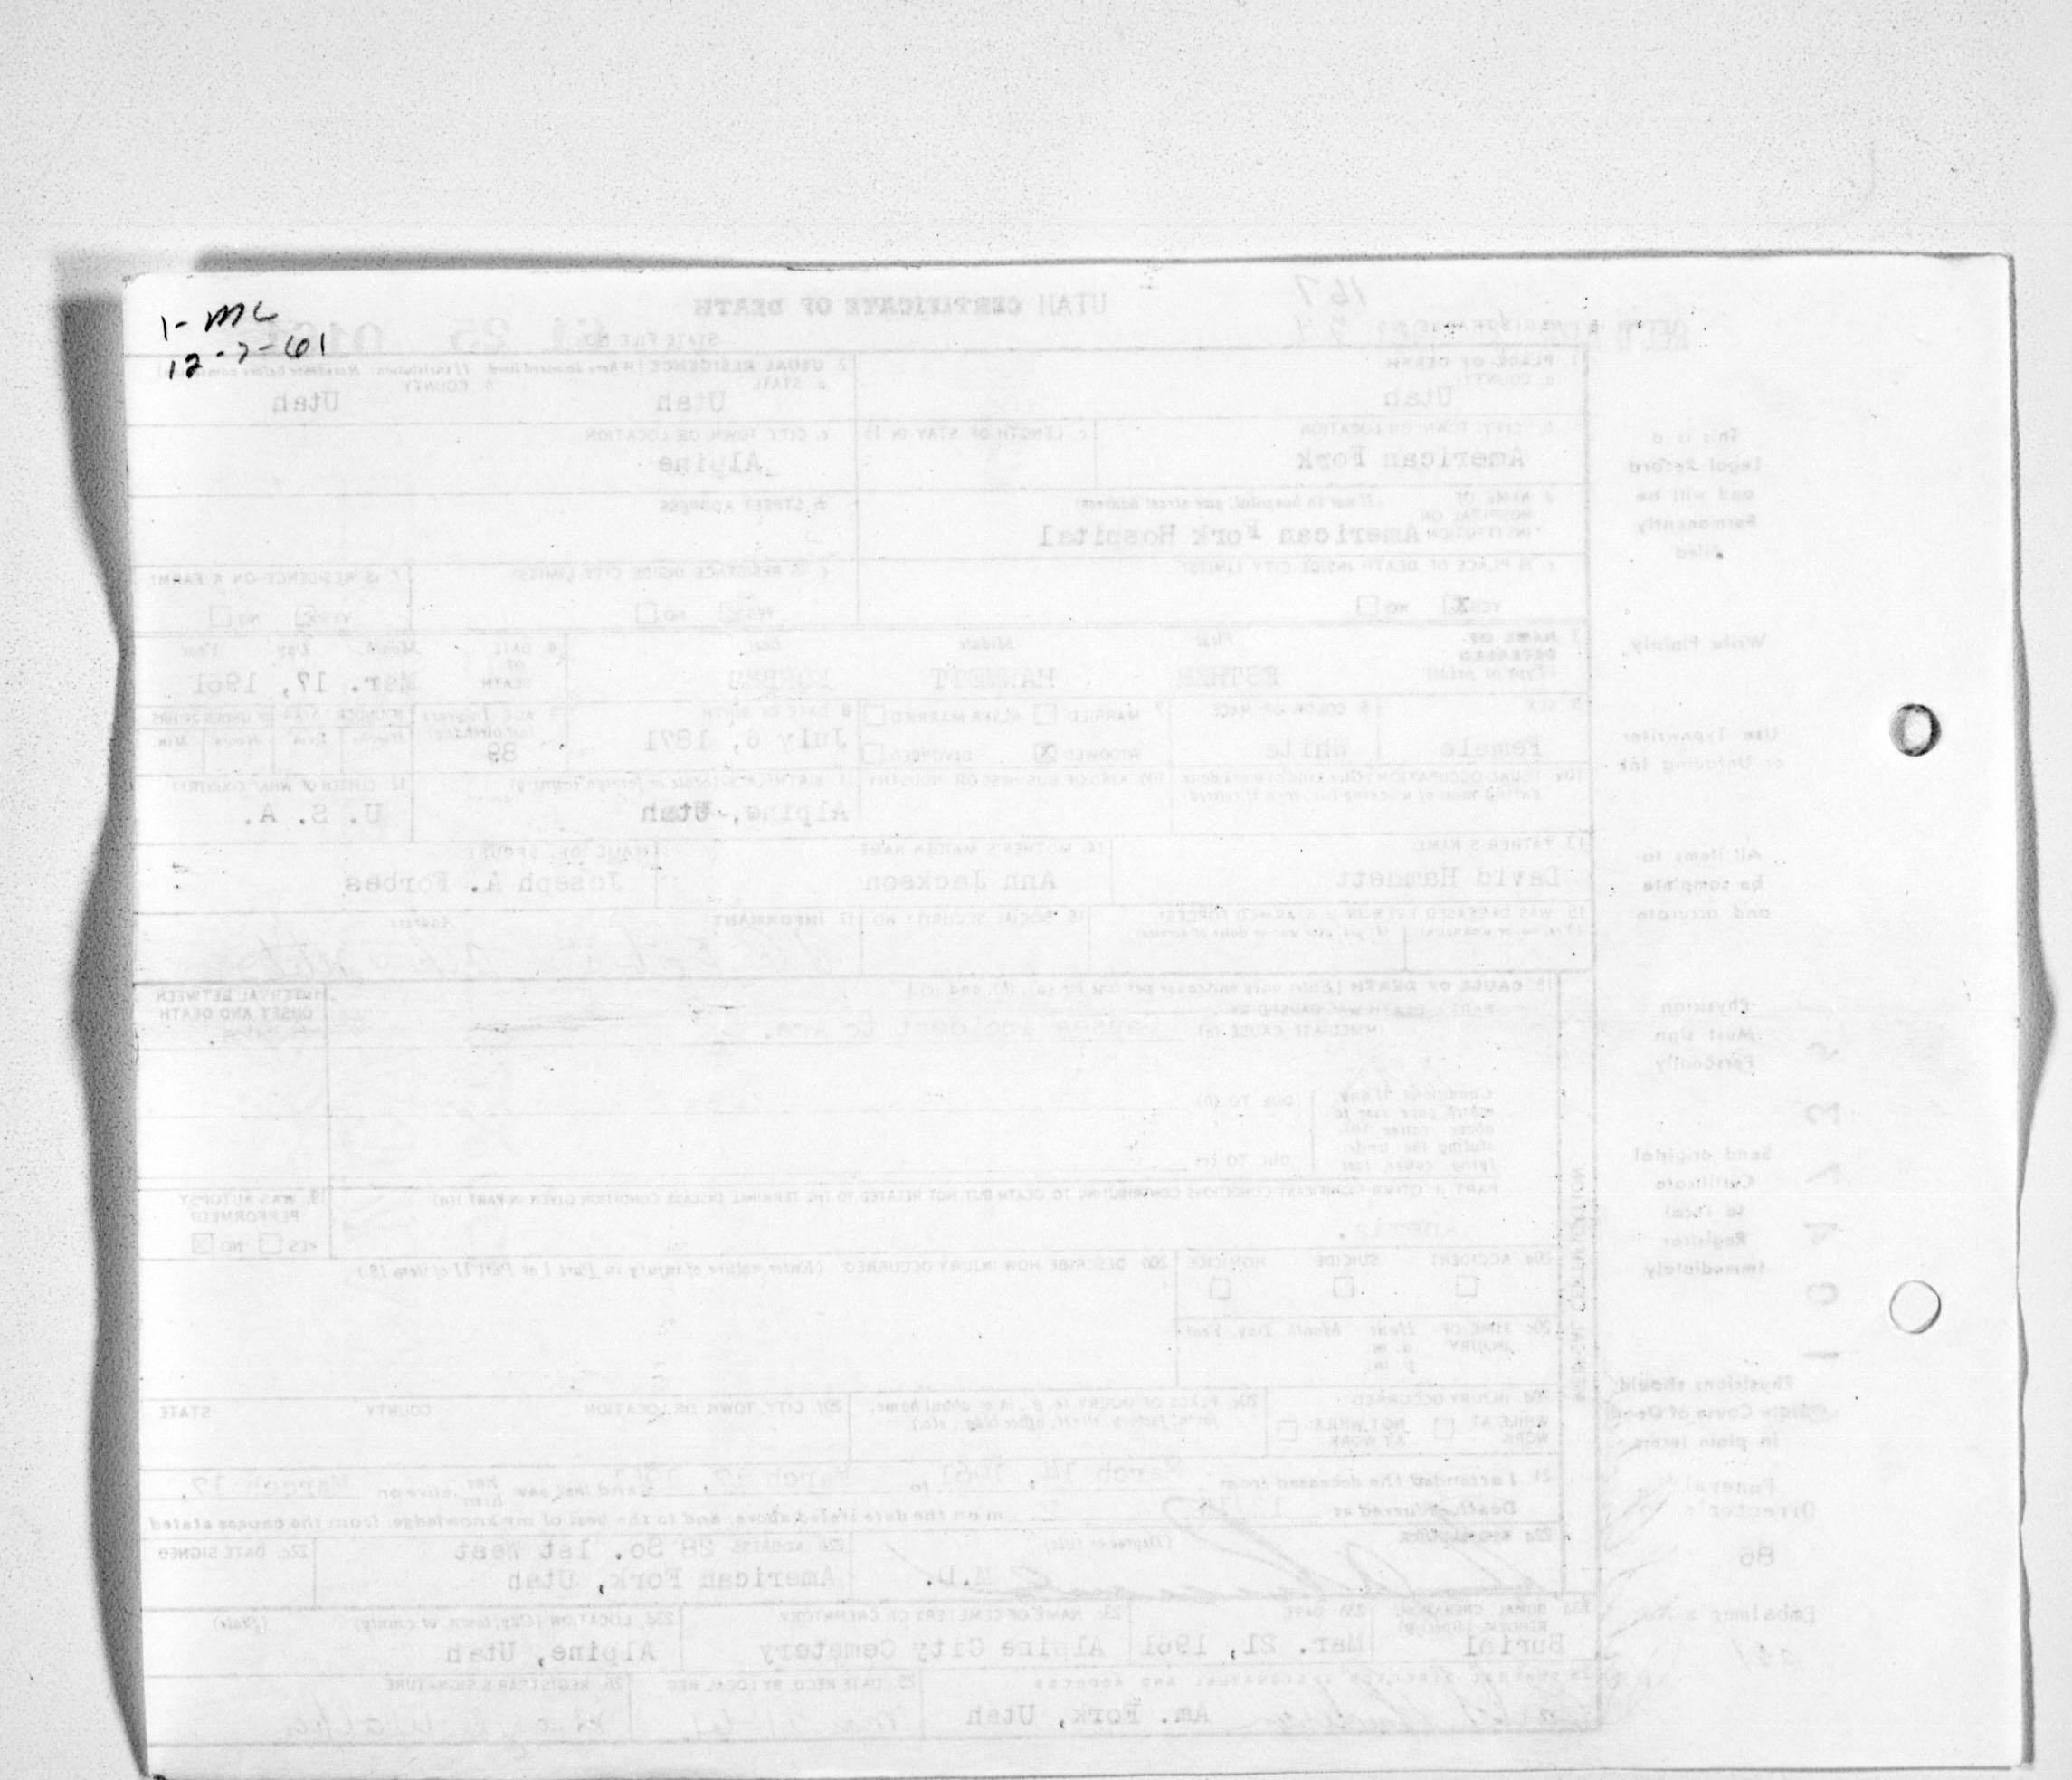 1- mc
12-7-61
UTAH CERTIFICATE OF DEATH
167
STATE FILE NO. 61 25
1. PLACE OF DEATH
a. COUNTY
Utah
2. USUAL RESIDENCE
a. STATE
Utah
b. COUNTY
Utah
b. CITY, TOWN, OR LOCATION
American Fork
c. LENGTH OF STAY IN 1b
c. CITY, TOWN, OR LOCATION
Alpine
d. NAME OF HOSPITAL OR INSTITUTION (If not in hospital, give street address)
American Fork Hospital
d. STREET ADDRESS
e. IS PLACE OF DEATH INSIDE CITY LIMITS?
YES X NO
e. IS RESIDENCE INSIDE CITY LIMITS?
YES NO
f. IS RESIDENCE ON A FARM?
YES NO
3. NAME OF DECEASED (Type or print)
First Middle Last
ESTHER HAMMETT FORBES
4. DATE OF DEATH Month Day Year
Mar. 17, 1961
5. SEX
Female
6. COLOR OR RACE
White
7. MARRIED NEVER MARRIED
WIDOWED X DIVORCED
8. DATE OF BIRTH
July 6, 1871
9. AGE
89
10b. KIND OF BUSINESS OR INDUSTRY
11. BIRTHPLACE (State or foreign country)
Alpine, Utah
12. CITIZEN OF WHAT COUNTRY?
U. S. A.
13. FATHER'S NAME
David Hammett
14. MOTHER'S MAIDEN NAME
Ann Jackson
NAME OF SPOUSE
Joseph A. Forbes
15. WAS DECEASED EVER IN U. S. ARMED FORCES?
16. SOCIAL SECURITY NO.
17. INFORMANT Address
18. CAUSE OF DEATH (Enter only one cause per line for (a), (b), and (c).)
PART I. DEATH WAS CAUSED BY:
IMMEDIATE CAUSE (a) Causes incident to age.
INTERVAL BETWEEN ONSET AND DEATH
Conditions, if any, which gave rise to above cause (a), stating the underlying cause last.
DUE TO (b)
DUE TO (c)
PART II. OTHER SIGNIFICANT CONDITIONS CONTRIBUTING TO DEATH BUT NOT RELATED TO THE TERMINAL DISEASE CONDITION GIVEN IN PART I(a)
19. WAS AUTOPSY PERFORMED?
YES NO X
20a. ACCIDENT SUICIDE HOMICIDE
20b. DESCRIBE HOW INJURY OCCURRED. (Enter nature of injury in Part I or Part II of item 18.)
20c. TIME OF INJURY Hour a. m. p. m. Month, Day, Year
20d. INJURY OCCURRED
WHILE AT WORK NOT WHILE AT WORK
20e. PLACE OF INJURY (e. g., in or about home, farm, factory, street, office bldg., etc.)
20f. CITY, TOWN, OR LOCATION COUNTY STATE
21. I attended the deceased from March 14, 1961 to March 17, 1961 and last saw her him alive on March 17,
Death occurred at m on the date stated above, and to the best of my knowledge, from the causes stated
22a. SIGNATURE (Degree or title)
M.D.
22b. ADDRESS 28 So. 1st West
American Fork, Utah
22c. DATE SIGNED
23a. BURIAL, CREMATION, REMOVAL (Specify)
Burial
23b. DATE
Mar. 21, 1961
23c. NAME OF CEMETERY OR CREMATORY
Alpine City Cemetery
23d. LOCATION (City, town, or county) (State)
Alpine, Utah
24. FUNERAL DIRECTOR'S SIGNATURE AND ADDRESS
Am. Fork, Utah
25. DATE RECD BY LOCAL REG.
26. REGISTRAR'S SIGNATURE
MEDICAL CERTIFICATION
This is a Legal Record and will be Permanently Filed.
Write Plainly
Use Typewriter or Unfading Ink
All items to be complete and accurate
Physician Must sign Personally
Send original Certificate to local Registrar immediately
Physicians should state Cause of Death in plain terms
Funeral Director's No.
86
Embalmer's No.